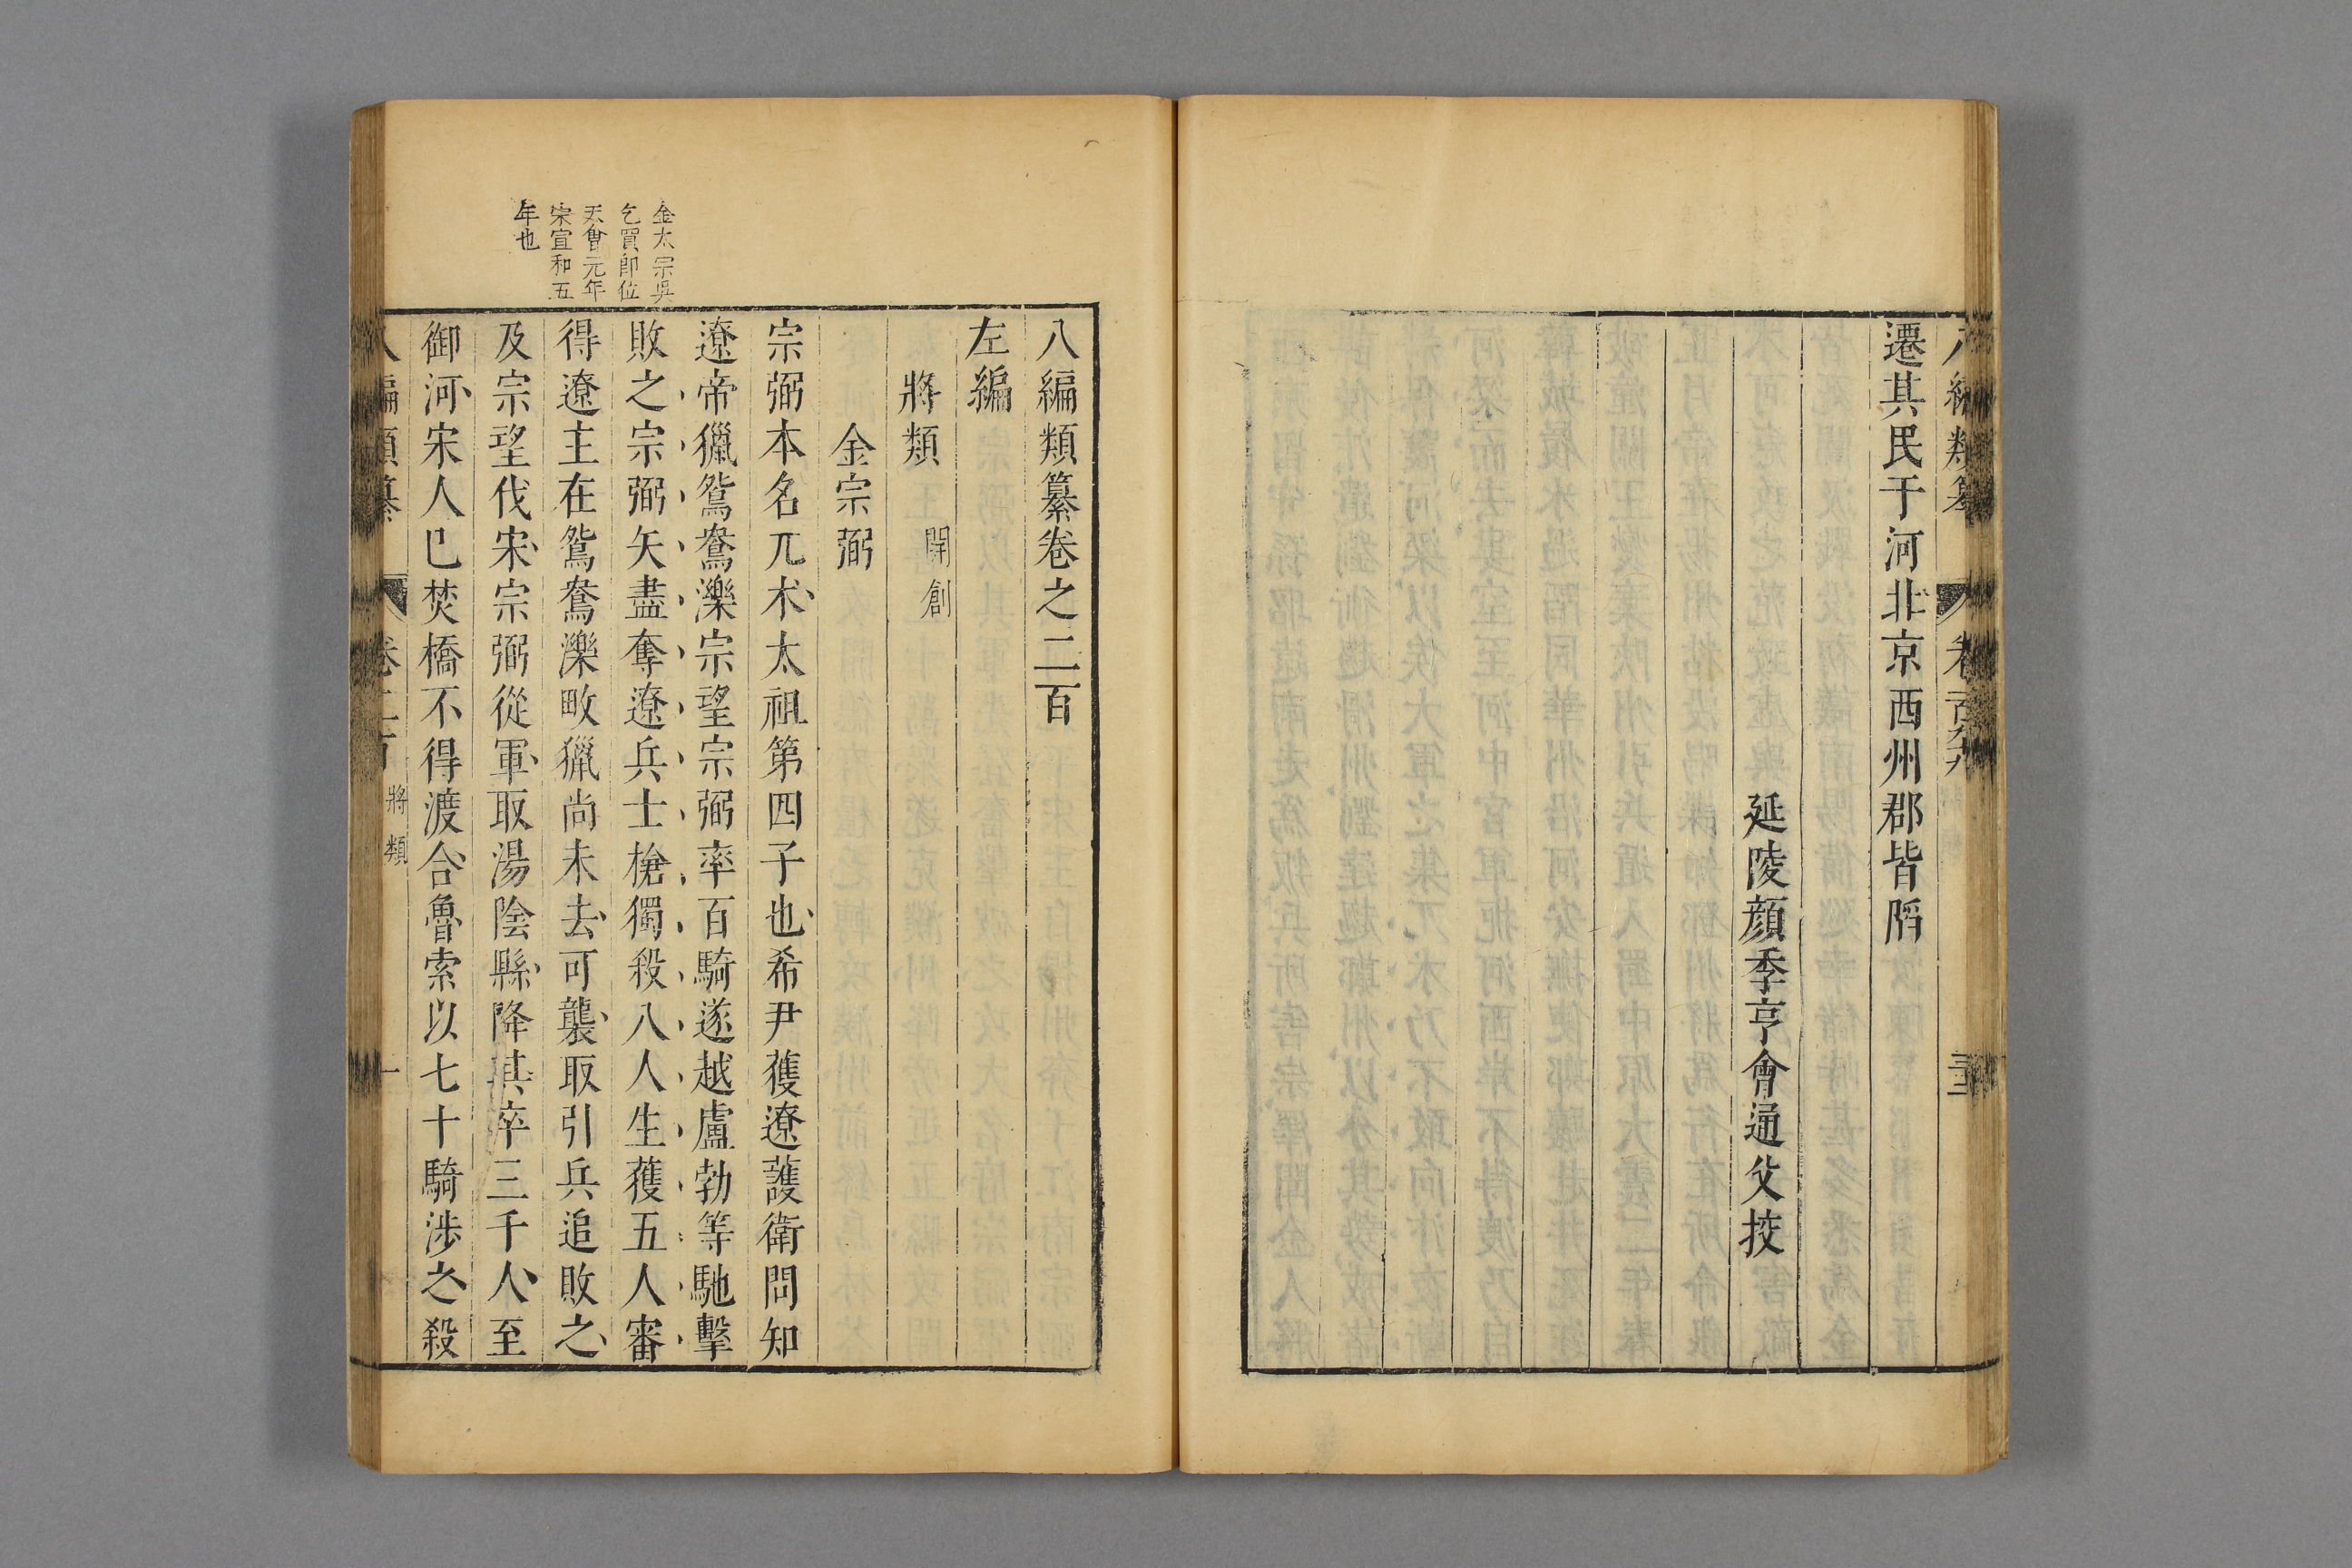 八編類纂
卷百九十九
三十三
遷其民于河北京西州郡皆䧟
延陵顔季亨會通父挍
八編類纂卷之二百
左編
將類
開創
金宗弼
宗弼本名兀朮太祖第四子也希尹獲遼護衛問知
遼帝獵鴛鴦濼宗望宗弼率百騎遂越盧勃等馳擊
敗之宗弼矢盡奪遼兵士槍獨殺八人生獲五人審
得遼主在鴛鴦濼畋獵尚未去可襲取引兵追敗之
及宗望伐宋宗弼從軍取湯陰縣降其卒三千人至
御河宋人已焚橋不得渡合魯索以七十騎涉之殺
金太宗吳
乞買卽位
天會元年
宋宣和五
年也
八編類纂
卷二百
將類
一